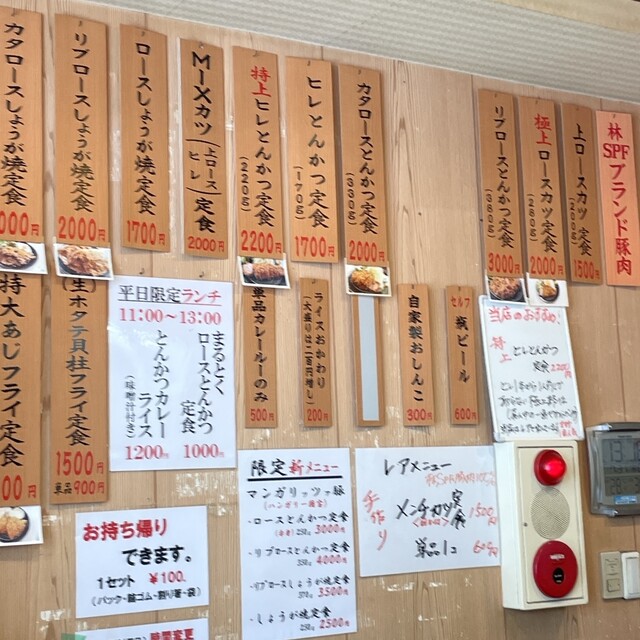 林SPFブランド豚肉
上ロースカツ定食
(200g)
1500円
極上ロースカツ定食
2000円
リブロースとんかつ定食
3000円
カタロースとんかつ定食
(330g)
2000円
ヒレとんかつ定食
(170g)
1700円
特上ヒレとんかつ定食
(220g)
2200円
MIXカツ(上ロース ヒレ)定食
2000円
ロースしょうが焼定食
1700円
リブロースしょうが焼定食
2000円
カタロースしょうが焼定食
000円
セルフ 瓶ビール
600円
自家製おしんこ
300円
ライスおかわり
200円
単品カレールーのみ
500円
平日限定ランチ
11:00〜13:00
まるとく
ロースとんかつ
定食
1000円
とんかつカレー
ライス
(味噌汁付き)
1200円
(生)ホタテ貝柱フライ定食
1500円
単品900円
特大あじフライ定食
00円
当店のおすすめ、
特上 ヒレとんかつ
定食
限定 新メニュー
マンガリッツァ豚
(ハンガリー国宝)
・ロースとんかつ定食
250g 3000円
・リブロースとんかつ定食
350g 4000円
・リブロースしょうが焼定食
370g 3500円
・しょうが焼定食
250g 2500円
レアメニュー
手作り
メンチカツ定食
1500円
単品1コ
600円
お持ち帰り
できます。
1セット ¥100.
(パック・輪ゴム・割り箸・袋)